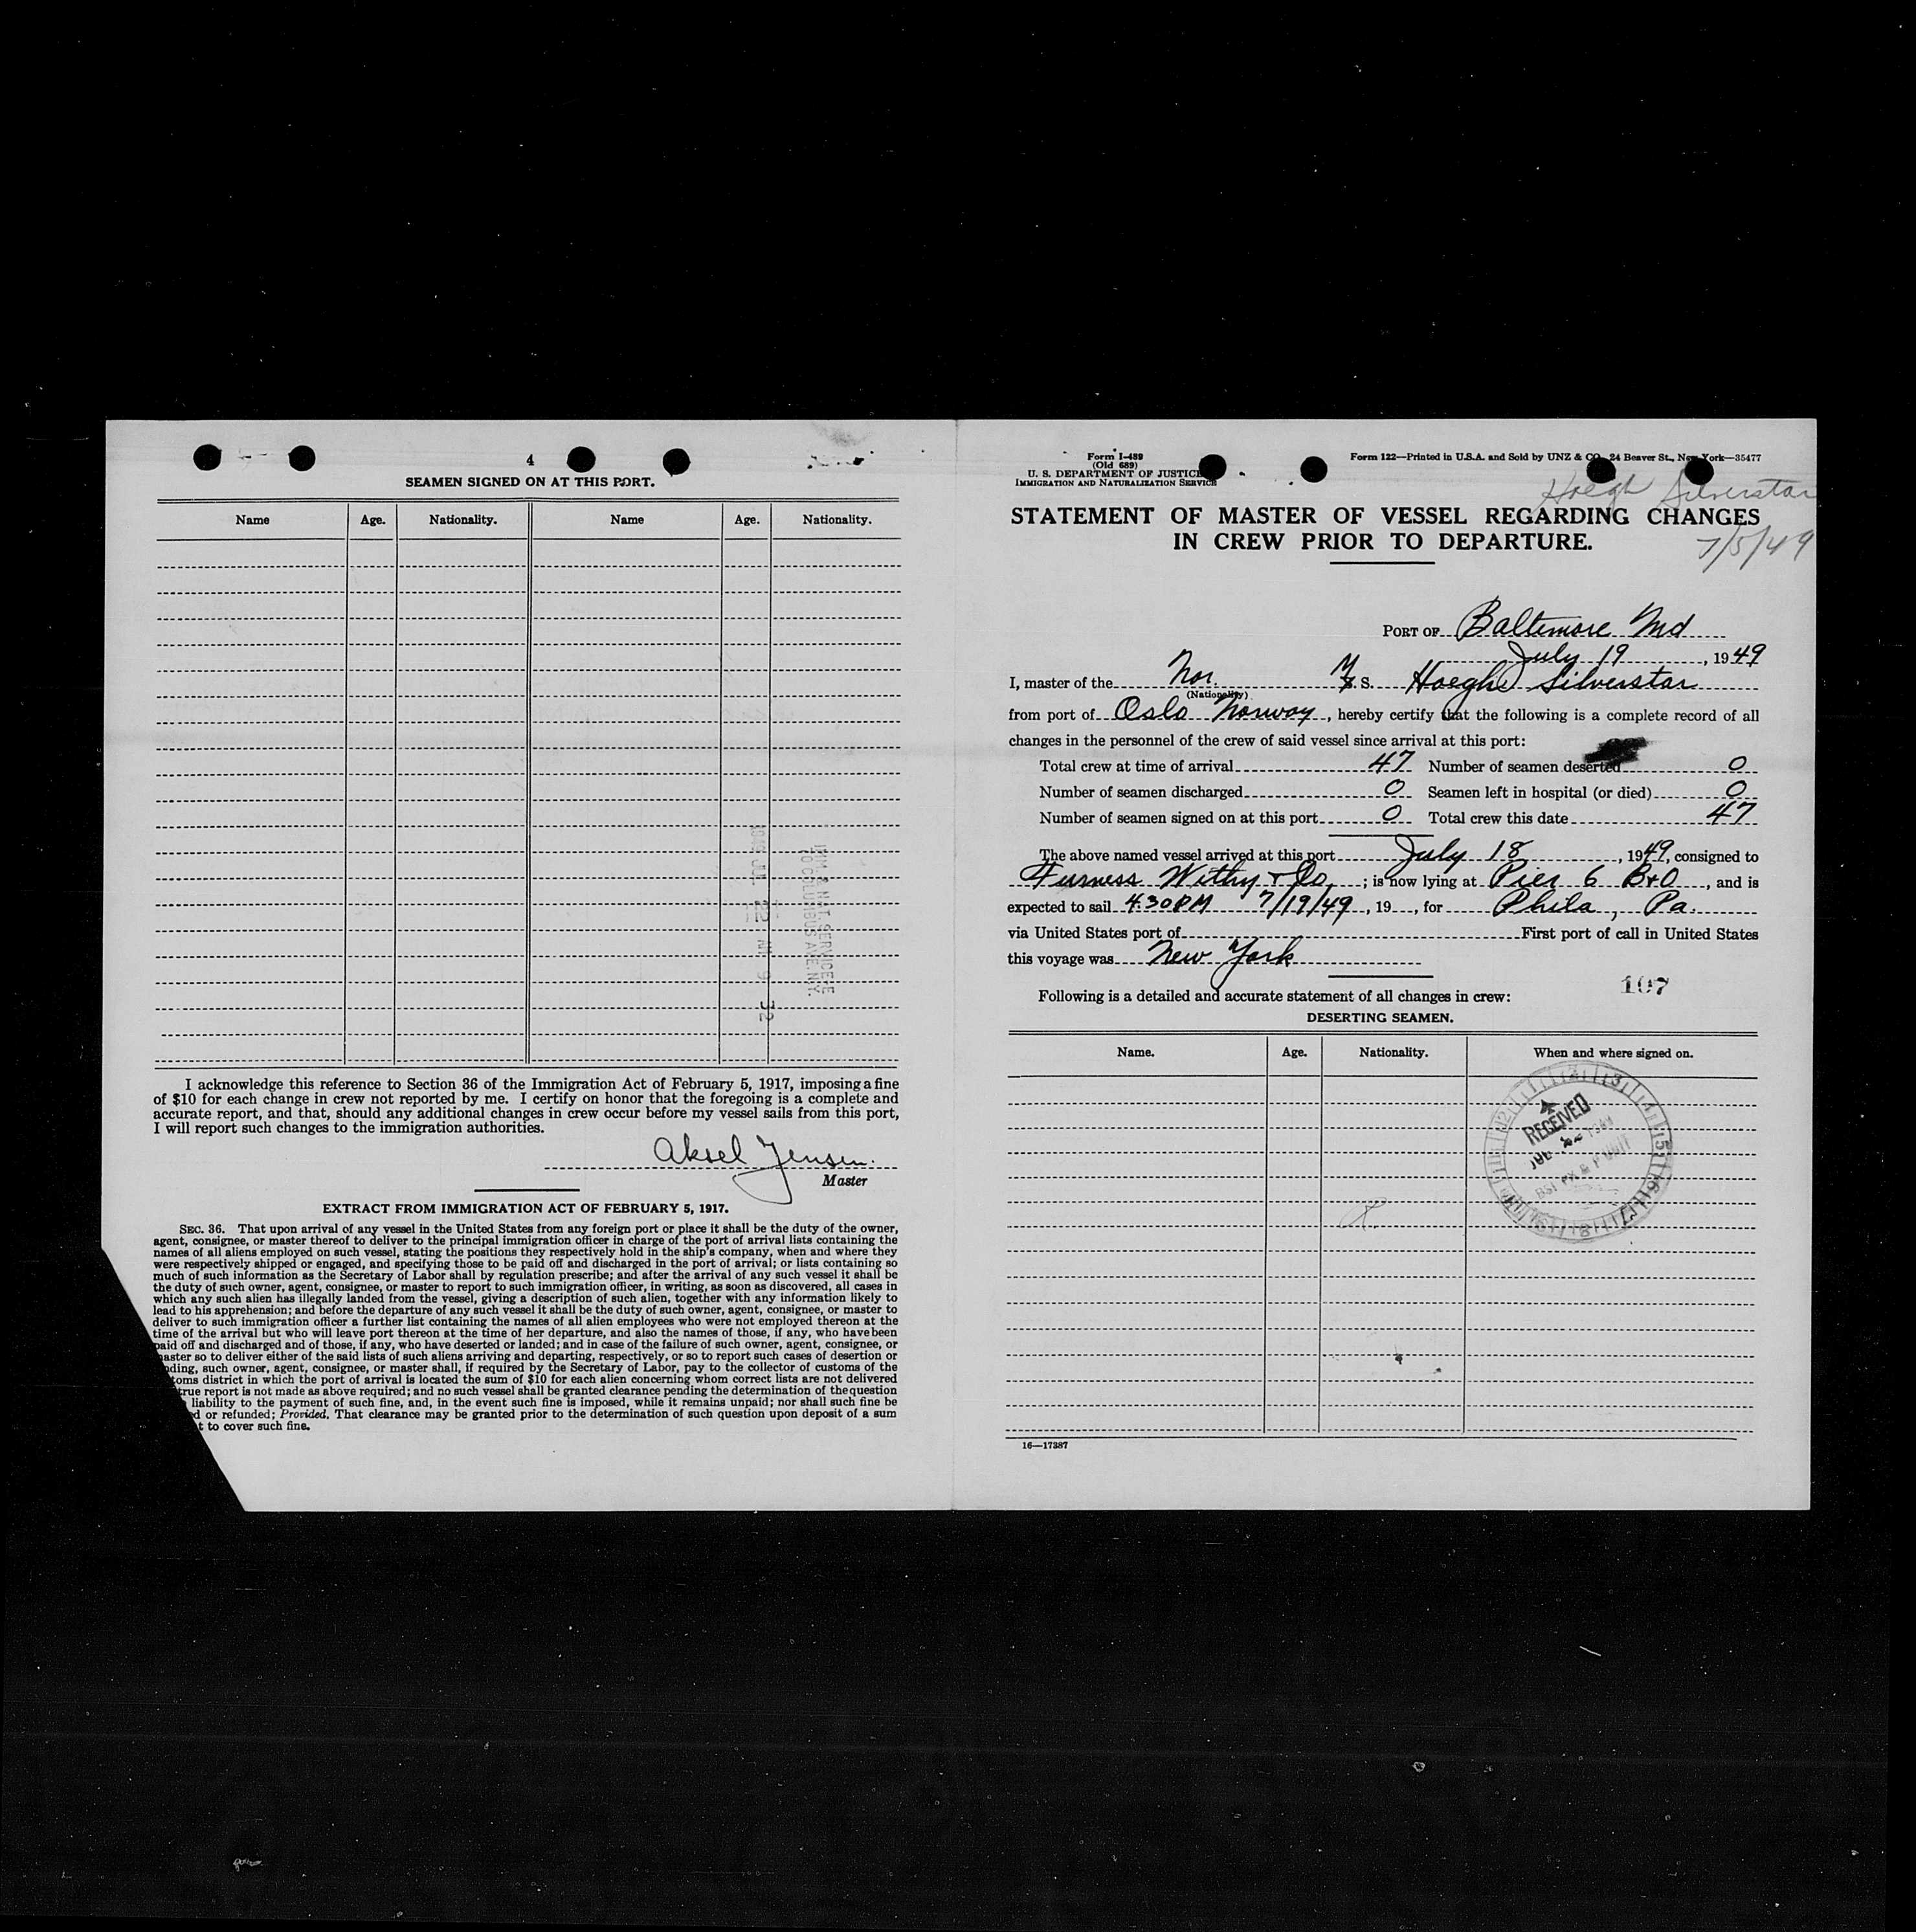 4
SEAMEN SIGNED ON AT THIS PORT.
Name Age. Nationality. Name Age. Nationality.
IMM. & NAT. SERVICE
70 COLUMBUS AVE. N.Y.
JUL 22 AM 9 32
I acknowledge this reference to Section 36 of the Immigration Act of February 5, 1917, imposing a fine
of $10 for each change in crew not reported by me. I certify on honor that the foregoing is a complete and
accurate report, and that, should any additional changes in crew occur before my vessel sails from this port,
I will report such changes to the immigration authorities.
Aksel Jensen.
Master
EXTRACT FROM IMMIGRATION ACT OF FEBRUARY 5, 1917.
SEC. 36. That upon arrival of any vessel in the United States from any foreign port or place it shall be the duty of the owner,
agent, consignee, or master thereof to deliver to the principal immigration officer in charge of the port of arrival lists containing the
names of all aliens employed on such vessel, stating the positions they respectively hold in the ship's company, when and where they
were respectively shipped or engaged, and specifying those to be paid off and discharged in the port of arrival; or lists containing so
much of such information as the Secretary of Labor shall by regulation prescribe; and after the arrival of any such vessel it shall be
the duty of such owner, agent, consignee, or master to report to such immigration officer, in writing, as soon as discovered, all cases in
which any such alien has illegally landed from the vessel, giving a description of such alien, together with any information likely to
lead to his apprehension; and before the departure of any such vessel it shall be the duty of such owner, agent, consignee, or master to
deliver to such immigration officer a further list containing the names of all alien employees who were not employed thereon at the
time of the arrival but who will leave port thereon at the time of her departure, and also the names of those, if any, who have been
paid off and discharged and of those, if any, who have deserted or landed; and in case of the failure of such owner, agent, consignee, or
aster so to deliver either of the said lists of such aliens arriving and departing, respectively, or so to report such cases of desertion or
nding, such owner, agent, consignee, or master shall, if required by the Secretary of Labor, pay to the collector of customs of the
toms district in which the port of arrival is located the sum of $10 for each alien concerning whom correct lists are not delivered
true report is not made as above required; and no such vessel shall be granted clearance pending the determination of the question
liability to the payment of such fine, and, in the event such fine is imposed, while it remains unpaid; nor shall such fine be
d or refunded; Provided, That clearance may be granted prior to the determination of such question upon deposit of a sum
t to cover such fine.
Form I-489
(Old 689)
U. S. DEPARTMENT OF JUSTICE
IMMIGRATION AND NATURALIZATION SERVICE
Form 122—Printed in U.S.A. and Sold by UNZ & CO., 24 Beaver St., New York—35477
Hoegh Silverstar
7/5/49
STATEMENT OF MASTER OF VESSEL REGARDING CHANGES
IN CREW PRIOR TO DEPARTURE.
PORT OF Baltimore Md
July 19, 1949
I, master of the Nor. M. S. Hoegh Silverstar
(Nationality)
from port of Oslo Norway, hereby certify that the following is a complete record of all
changes in the personnel of the crew of said vessel since arrival at this port:
Total crew at time of arrival 47 Number of seamen deserted 0
Number of seamen discharged 0 Seamen left in hospital (or died) 0
Number of seamen signed on at this port 0 Total crew this date 47
The above named vessel arrived at this port July 18, 1949, consigned to
Furness Withy & Co; is now lying at Pier 6 B&O, and is
expected to sail 4:30 PM 7/19/49, 19, for Phila, Pa.
via United States port of First port of call in United States
this voyage was New York
107
Following is a detailed and accurate statement of all changes in crew:
DESERTING SEAMEN.
Name. Age. Nationality. When and where signed on.
RECEIVED
16—17387